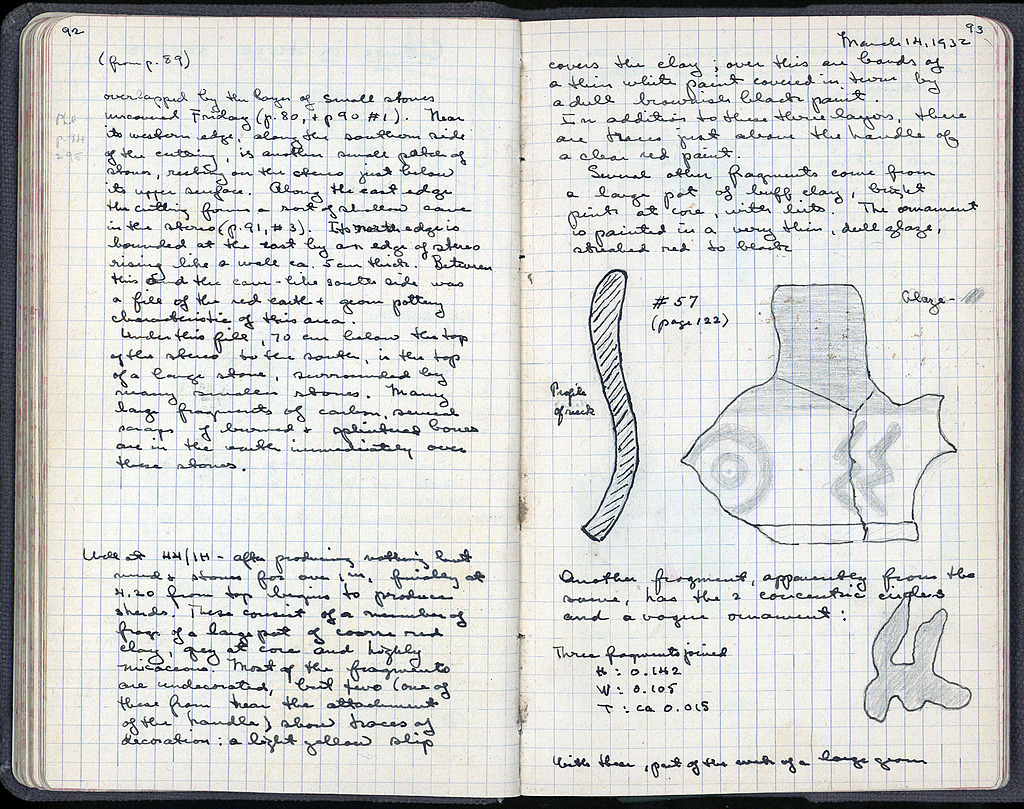 92
(from p. 89)
overlapped by the layer of small stones
uncovered Friday (p. 80, + p 90 #1). Near
its western edge, along the southern side
of the cutting, is another small patch of
stones, resting on the stereo just below
its upper surface. Along the east edge
the cutting forms a sort of shallow cave
in the stereo (p. 91, #3). Its north edge is
bounded at the east by an edge of stereo
rising like a wall ca. 5 cm thick. Between
this and the cave-like south side was
a fill of the red earth + geom pottery
characteristic of this area.
Under this fill, 70 cm below the top
of the stereo to the south, is the top
of a large stone, surrounded by
many smaller stones. Many
large fragments of carbon, several
scraps of burned + splintered bones
are in the earth immediately over
these stones.
Well at 44/14 - after producing nothing but
mud & stones for over 1 m, finally at
4.20 from top begins to produce
sherds. These consist of a number of
frags of a large pot of coarse red
clay, grey at core and highly
micaceous. Most of the fragments
are undecorated, but two (one of
these from near the attachment
of the handle) show traces of
decoration: a light yellow slip
93
March 14, 1932
covers the clay; over this are bands of
a thin white paint covered in turn by
a dull brownish black paint.
In addition to these three layers, there
are traces just above the handle of
a clear red paint.
Several other fragments come from
a large pot of buff clay, bright
pink at core, with bits. The ornament
is painted in a very thin, dull glaze,
streaked red to black
#57
(page 122)
Glaze -
Profile
of neck
Another fragment, apparently from the
same, has the 2 concentric circles
and a vague ornament:
Three fragments joined
H: 0.142
W: 0.105
T: ca 0.015
With these, part of the neck of a large geom